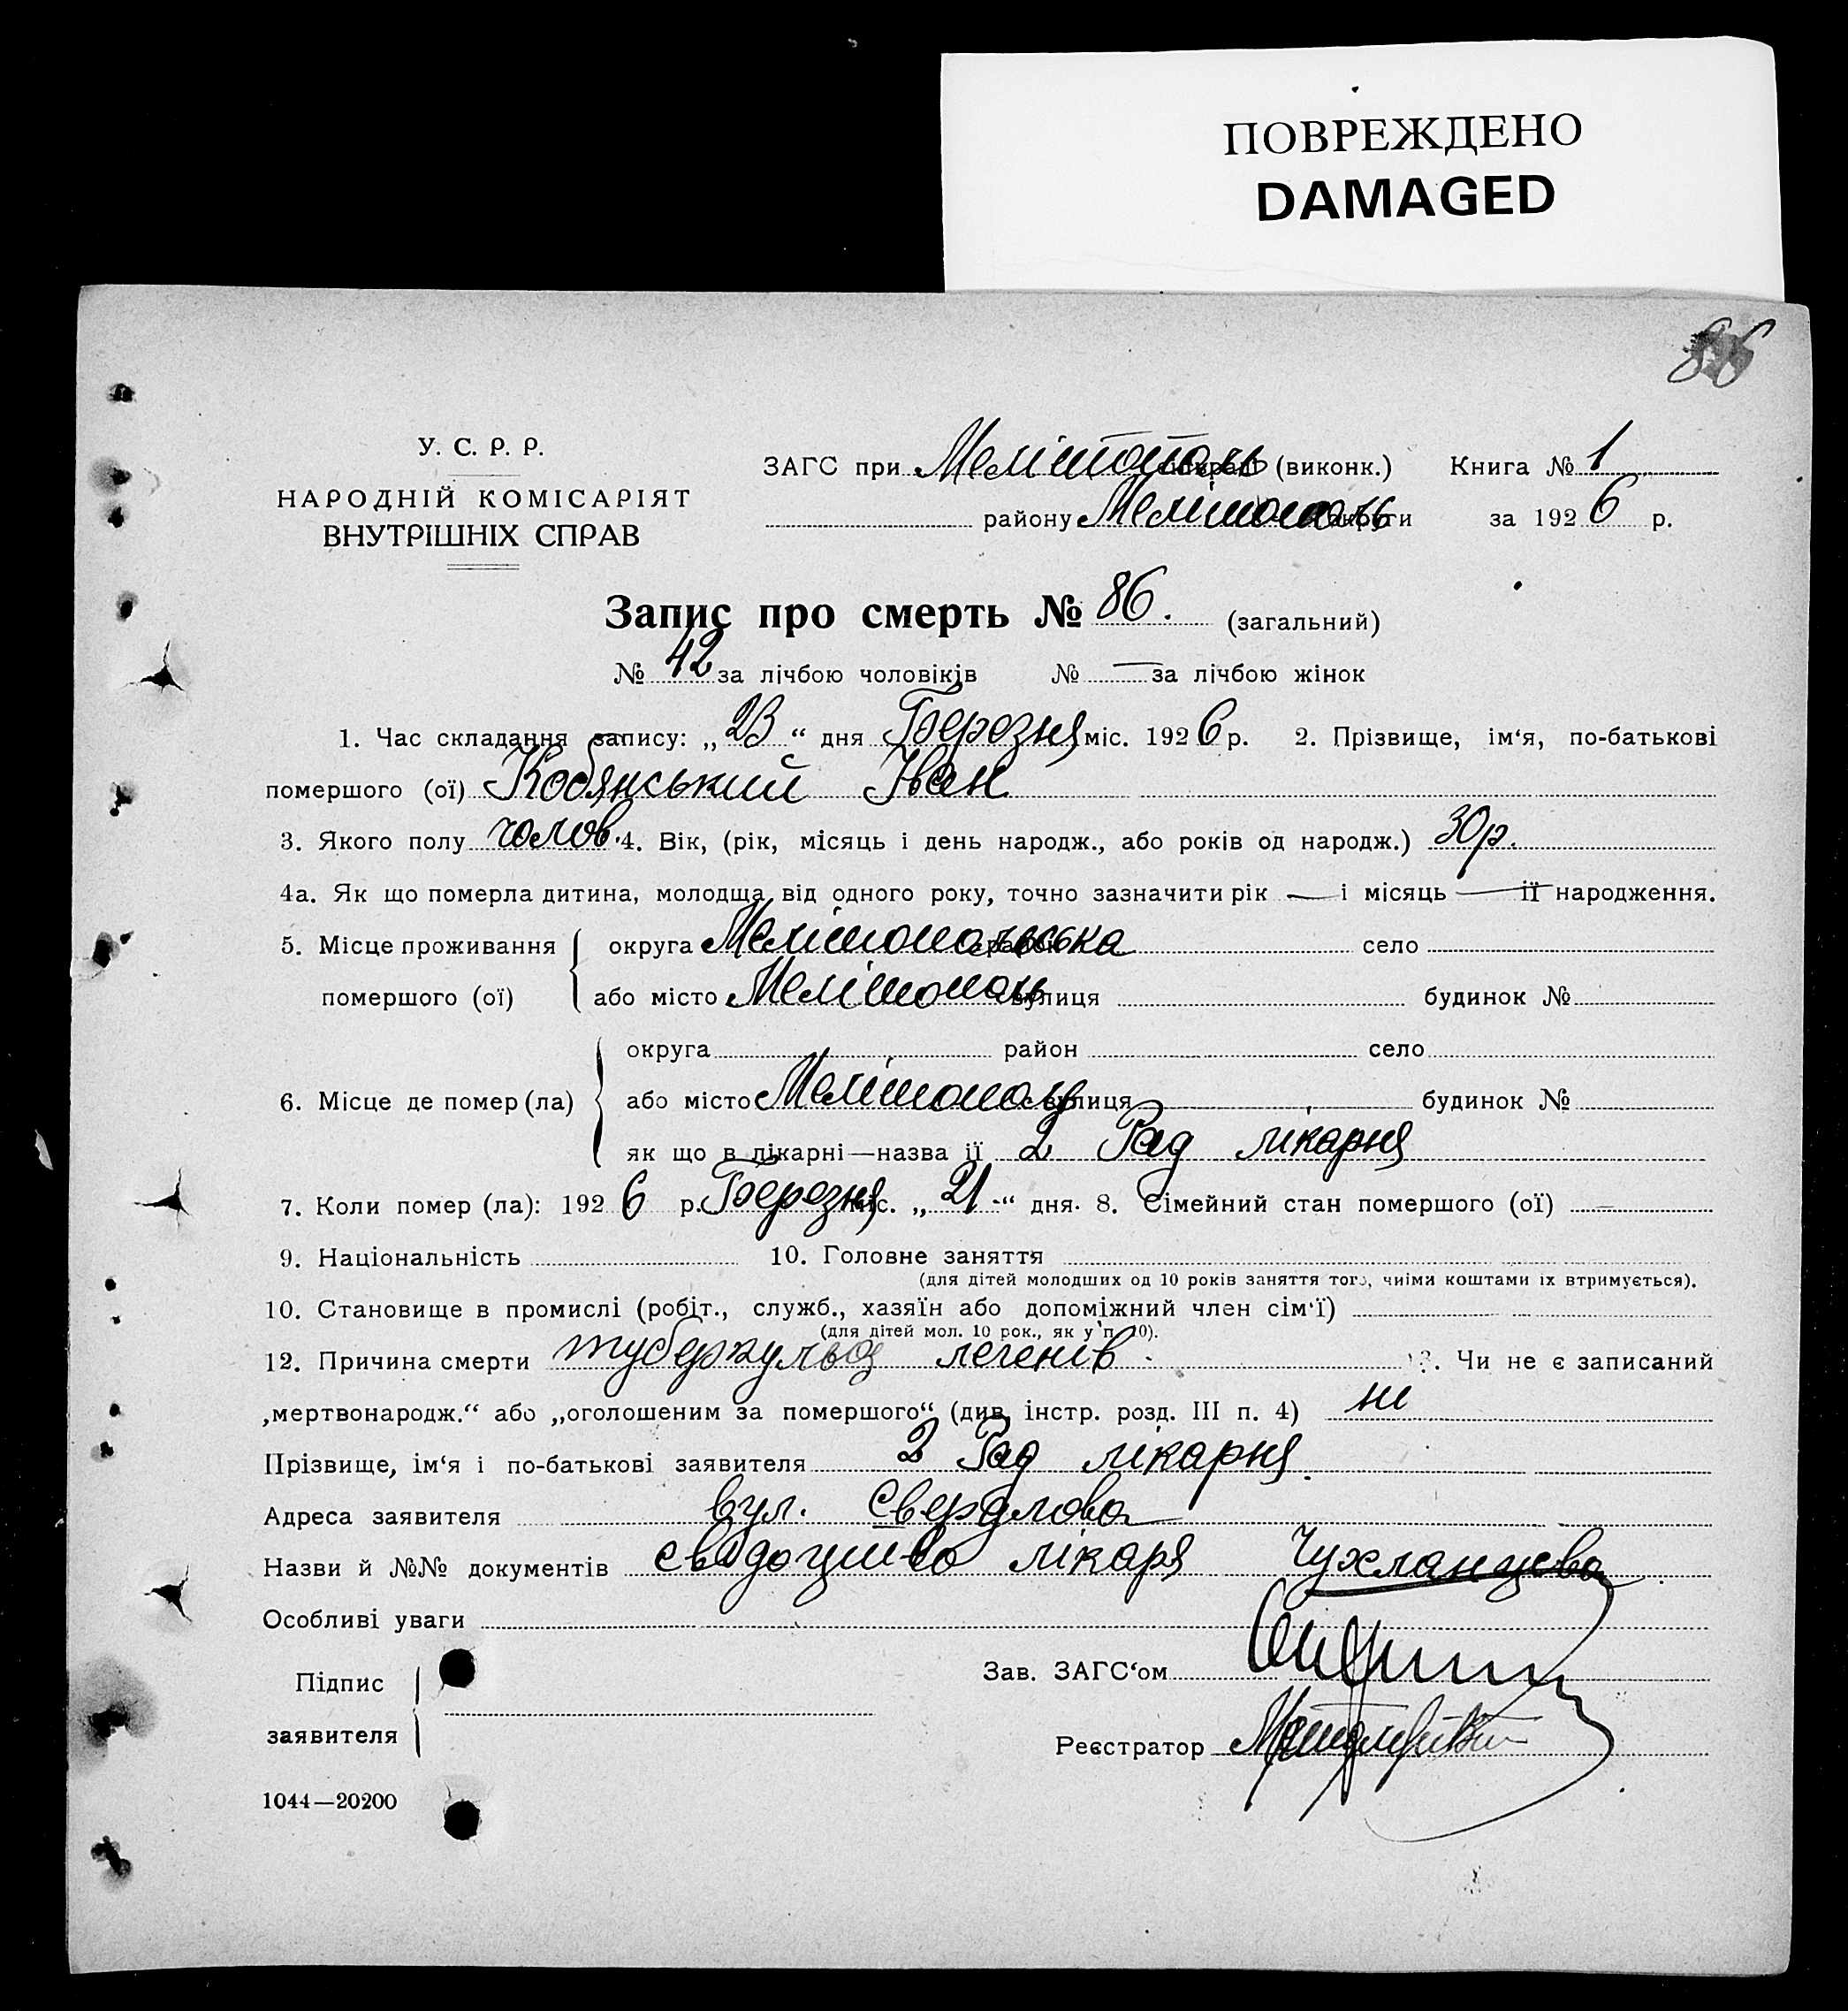 ПОВРЕЖДЕНО
DAMAGED
86
У. С. Р. Р.
НАРОДНІЙ КОМІСАРІЯТ
ВНУТРІШНІХ СПРАВ
ЗАГС при Мелітополь (виконк.) Книга № 1
району Мелітополь округи за 1926 р.
Запис про смерть № 86. (загальний)
№ 42 за лічбою чоловіків № — за лічбою жінок
1. Час складання запису: „23“ дня Березня міс. 1926 р. 2. Прізвище, ім‘я, по-батькові
помершого (ої) Кобянський Іван
3. Якого полу чолов. 4. Вік, (рік, місяць і день народж., або років од народж.) 30 р.
4а. Як що померла дитина, молодща від одного року, точно зазначити рік — і місяць — її народження.
5. Місце проживання округа Мелітопольська село
помершого (ої) або місто Мелітополь вулиця будинок №
округа район село
6. Місце де помер (ла) або місто Мелітополь вулиця будинок №
як що в лікарні—назва її 2 Рад лікарня
7. Коли помер (ла): 1926 р. Березня міс. „21“ дня. 8. Сімейний стан помершого (ої) —
9. Національність 10. Головне заняття
(для дітей молодших од 10 років заняття того, чиїми коштами їх втримується).
10. Становище в промислі (робіт., служб., хазяїн або допоміжний член сім‘ї)
(для дітей мол. 10 рок., як у п. 10).
12. Причина смерти туберкульоз легенів. 13. Чи не є записаний
„мертвонародж.“ або „оголошеним за помершого“ (див. інстр. розд. III п. 4) ні
Прізвище, ім‘я і по-батькові заявителя 2 Рад лікарня.
Адреса заявителя вул. Свердлова
Назви й №№ документів свідоцтво лікаря Чухланцева
Особливі уваги
Підпис
заявителя
Зав. ЗАГС‘ом
Реєстратор
1044—20200